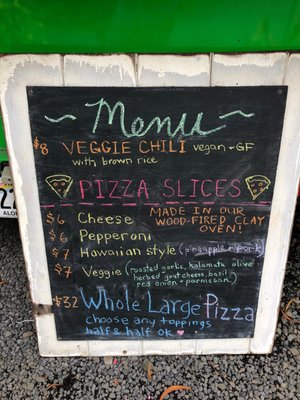 ~ Menu ~
$8 VEGGIE CHILI vegan + GF
with brown rice
PIZZA SLICES
$6 Cheese
MADE IN OUR
WOOD-FIRED CLAY
OVEN!
$6 Pepperoni
$7 Hawaiian style (pineapple + pork)
$7 Veggie (roasted garlic, kalamata olive
herbed goat cheese, basil
red onion + parmesan)
$32 Whole Large Pizza
choose any toppings
half & half OK ♥